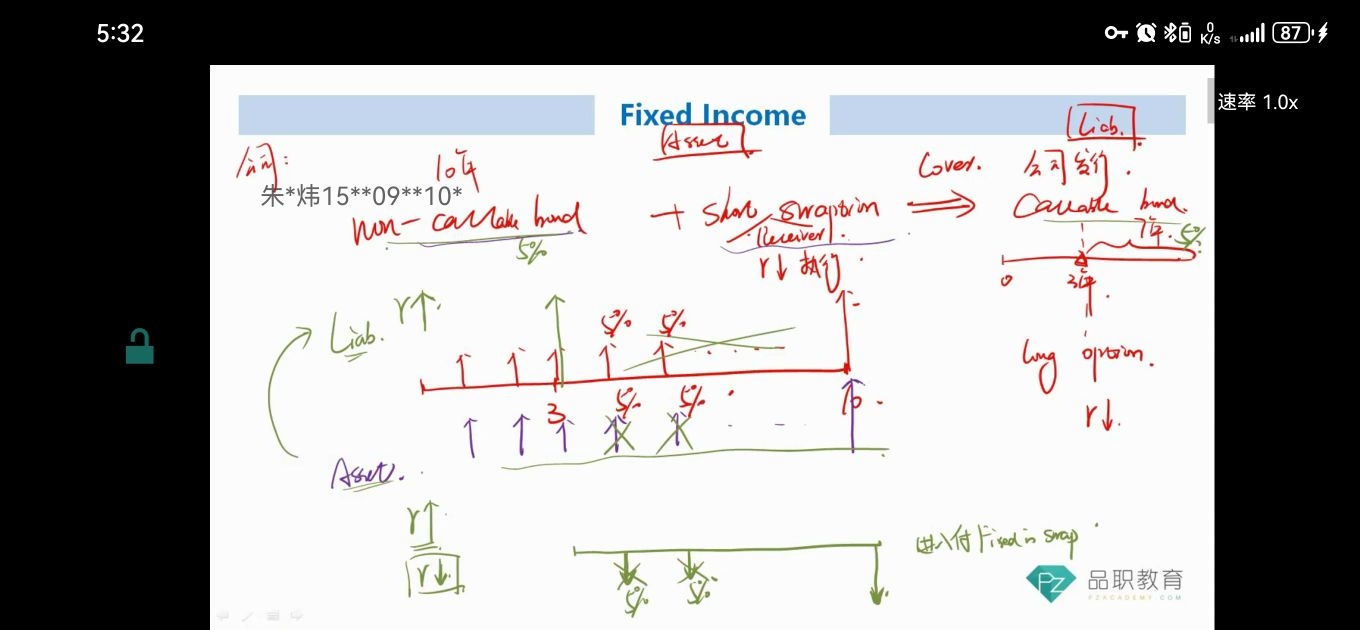 5:32
0 K/s
87
速率 1.0x
Fixed Income
Asset
Liab.
公司:
10年
Cover.
公司发行.
朱*炜15**09**10*
non-callable bond
+ short swaption
⇒
Callable bond.
5%
Receiver.
7年.
5%
r↓ 执行.
0
3年
r↑.
Liab.
5%
5%
long option.
3
5%
5%
10.
r↓.
Asset.
r↑
r↓
5%
5%
进入付 Fixed in swap
PZ
品职教育
PZACADEMY.COM